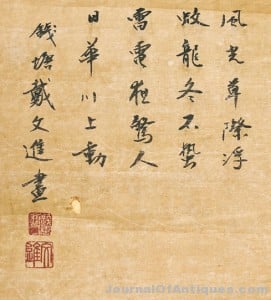 風光草際浮
龍冬不蟄
雷電夜驚人
日華川上動
錢塘戴文進畫
JournalOfAntiques.com